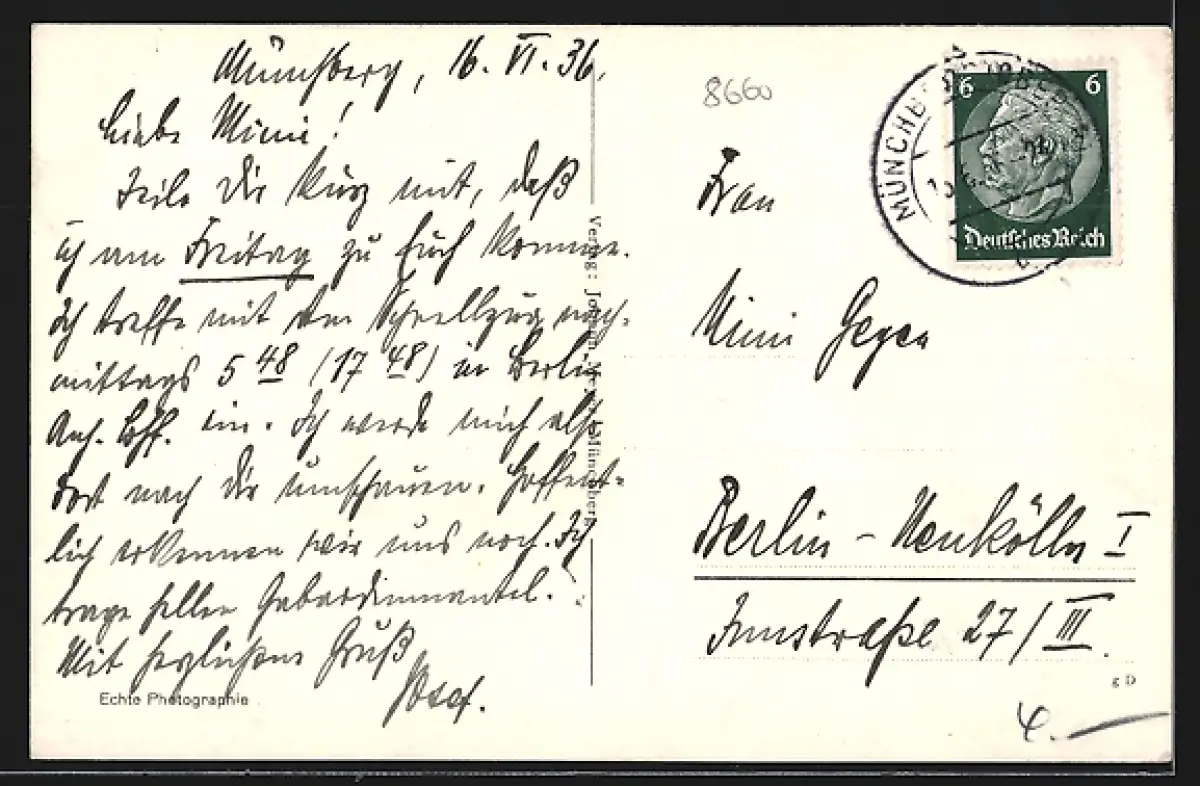 Münchberg, 16. VI. 36.
Liebe Mimi!
Teile Dir kurz mit, daß
ich am Freitag zu Euch komme.
Ich treffe mit dem Schnellzug nach-
mittags 5 48 (17 48) in Berlin
Anh. Bhf. ein. Ich werde mich also
dort nach Dir umschauen. Hoffent-
lich erkennen wir uns noch. Ich
trage hellen Gabardinmantel.
Mit herzlichem Gruß
Josef.
Echte Photographie
Verlag: Münchberg
8660
MÜNCHB
6 6
Deutsches Reich
Frau
Mimi Gegen
Berlin - Neukölln I
Innstraße 27/III.
g D
4.-